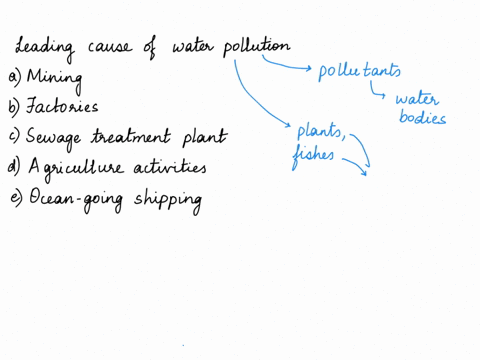 Leading cause of water pollution
a) Mining
b) Factories
c) Sewage treatment plant
d) Agriculture activities
e) Ocean-going shipping
pollutants
water
bodies
plants,
fishes